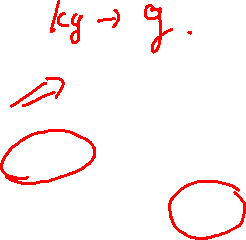 kg → g.